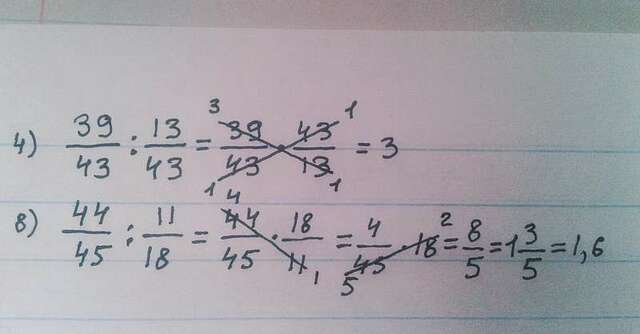 4) 39/43 : 13/43 = 39/43 · 43/13 = 3
8) 44/45 : 11/18 = 44/45 · 18/11 = 4/45 · 18 = 8/5 = 1 3/5 = 1,6